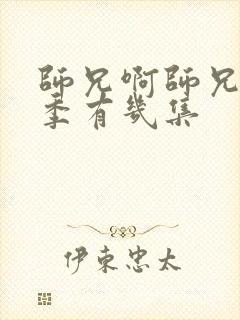 師兄啊師兄
季有幾集
伊東忠太